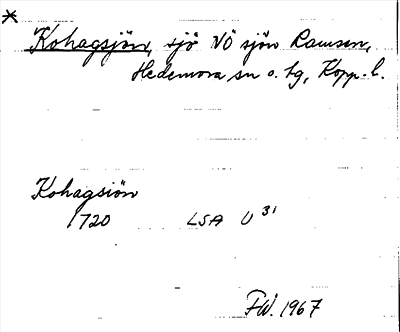 *
Kohagsjön, sjö VÖ sjön Ramsen,
Hedemora sn o. tg, Kopp. l.
Kohagsiön
1720 LSA U 31
F.W. 1967